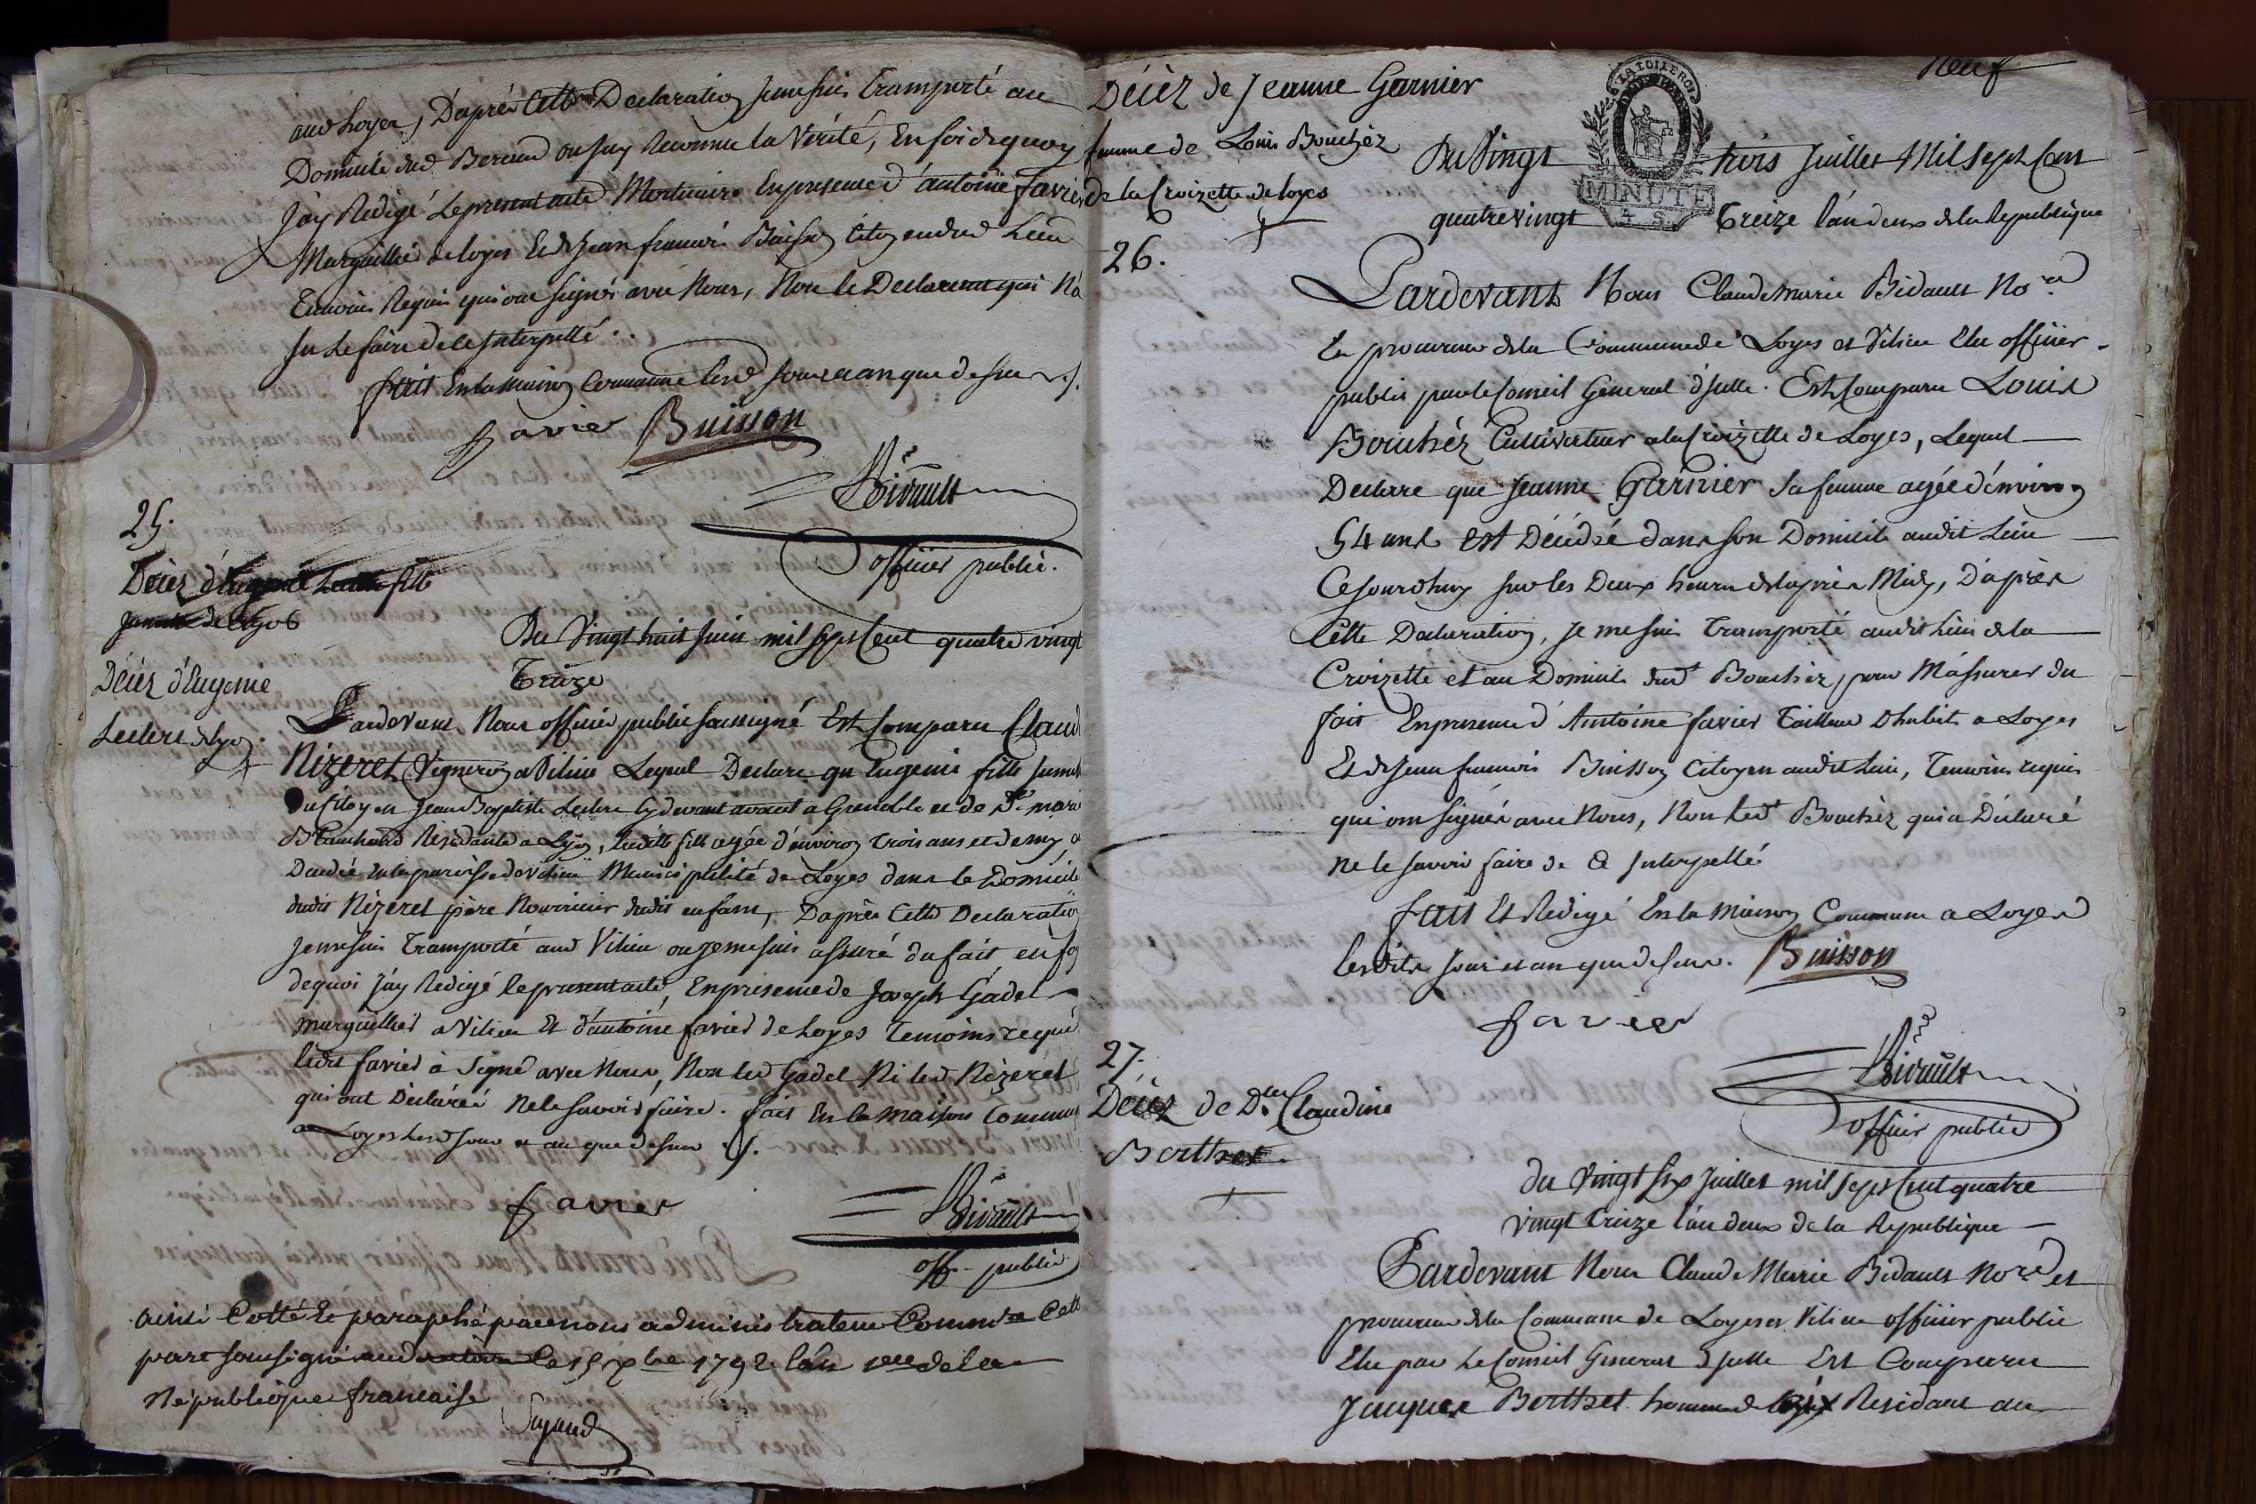 aud Loyer, D'après Cette Declaration Jeme suis transporté au
Domicile dud Beraud ou jay Reconnu la Vérité, En foi dequoy
J'ay Redigé Le present acte Mortuaire En presence d'antoine favier
Marguillié de loyes Et de Jean francois Buisson Citoyen dud Lieu
Temoins Requis qui ont signés avec Nous, Non le Declarant qui Na
su le faire de ce Interpellé.
fait En la maison Commune lesd jour et an que dessus
favier Buisson
Bidault
officier public.
25.
Décez d'
Décez d'Eugenie
Leclerc de lyon.
Du Vingt huit juin mil sept Cent quatre vingt
Treize
Pardevant Nous officier public soussigné Est Comparu Claude
Nizeret Vigneron a Vilieu Lequel Declare qu'Eugenie fille
du Citoyen Jean Baptiste Leclerc cydevant avocat a Grenoble et de De marie
Blanchard Residante a Lyon, Ladite fille agée d'environ trois ans et demy
Décedée En la paroisse de Vilieu Municipalité de Loyes dans le Domicile
dudit Nizeret père Nourricier dudit enfant, D'après Cette Declaration
Je me suis transporté aud Vilieu ou je me suis assuré du fait en foy
de quoi J'ay Redigé le present acte, En presence de Joseph Gadel
marguillier a Vilieu Et d'antoine favier de Loyes Temoins requis
ledit favier à signé avec Nous, Non led Gadel Ni led Nizeret
qui ont Déclarés ne le savoir faire. fait En la maison Commune
a Loyes Lesd jour et an que dessus
favier
Bidault
off. public
ainsi Cotté Et paraphé par nous administrateur Comm.re
par soussigné le 15 Xbre 1792 l'an 1er de la
République francaise
Neuf
MINUTE
4 S
Décèz de Jeanne Garnier
femme de Louis Bouchéz
de la Croizette de loyes
26.
Du Vingt trois Juillet Mil Sept Cent
quatrevingt Treize l'an deux de la Republique
Pardevant Nous Claude Marie Bidault No.re
Et procureur de la Commune de Loyes et Vilieu Elu officier
public par le Conseil General d'icelle. Est Comparu Louis
Bouchéz Cultivateur a la Croizette de Loyes, Lequel
Declare que Jeanne Garnier sa femme agée d'environ
54 ans est Décédée dans son Domicile audit Lieu
Cejourdhuy sur les Deux heures de laprès Midy, D'après
Cette Declaration, Je me suis transporté audit Lieu de la
Croizette et au Domicile dud Bouchéz, pour M'assurer du
fait En presence d'Antoine favier Tailleur D'habits a Loyes
Et de Jean francois Buisson Citoyen audit Lieu, Temoins requis
qui ont signés avec Nous, Non led Bouchéz qui a Déclaré
ne le savoir faire de ce Interpellé
fait Et Redigé En la Maison Commune a Loyes
lesdits Jour et an que dessus. Buisson
favier
Bidault
officier public
27.
Décez de Dlle Claudine
Berthet.
du Vingt six Juillet mil sept Cent quatre
vingt treize l'an deux de la Republique
Pardevant Nous Claude Marie Bidault No.re et
procureur de la Commune de Loyes et Vilieu officier public
Elu par Le Conseil General d'icelle Est Comparu
Jacques Berthet homme de Loix Residant au